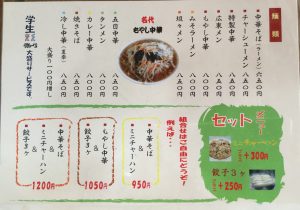 麺類
中華そば(ラーメン) 六五〇円
チャーシューメン 八五〇円
特製中華 八〇〇円
広東メン 八五〇円
もやし中華 八〇〇円
みそラーメン 八〇〇円
坦々メン 八〇〇円
名代
もやし中華
五目中華 八五〇円
タンメン 八〇〇円
カレー中華 八五〇円
焼きそば 八〇〇円
冷し中華
大盛り 一〇〇円増し
学生
大盛りサービスです。
セット
メニュー
ミニチャーハン
+300円
餃子3ヶ
+250円
組合せはご自由にどうぞ!
例えば…
中華そば
&
ミニチャーハン
950円
もやし中華
&
餃子3ヶ
1050円
中華そば
&
ミニチャーハン
&
餃子3ヶ
1200円